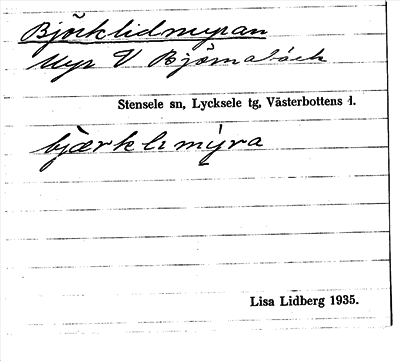 Björklidmyran
Myr V Björnabäck
Stensele sn, Lycksele tg, Västerbottens l.
bjærklımýra
Lisa Lidberg 1935.